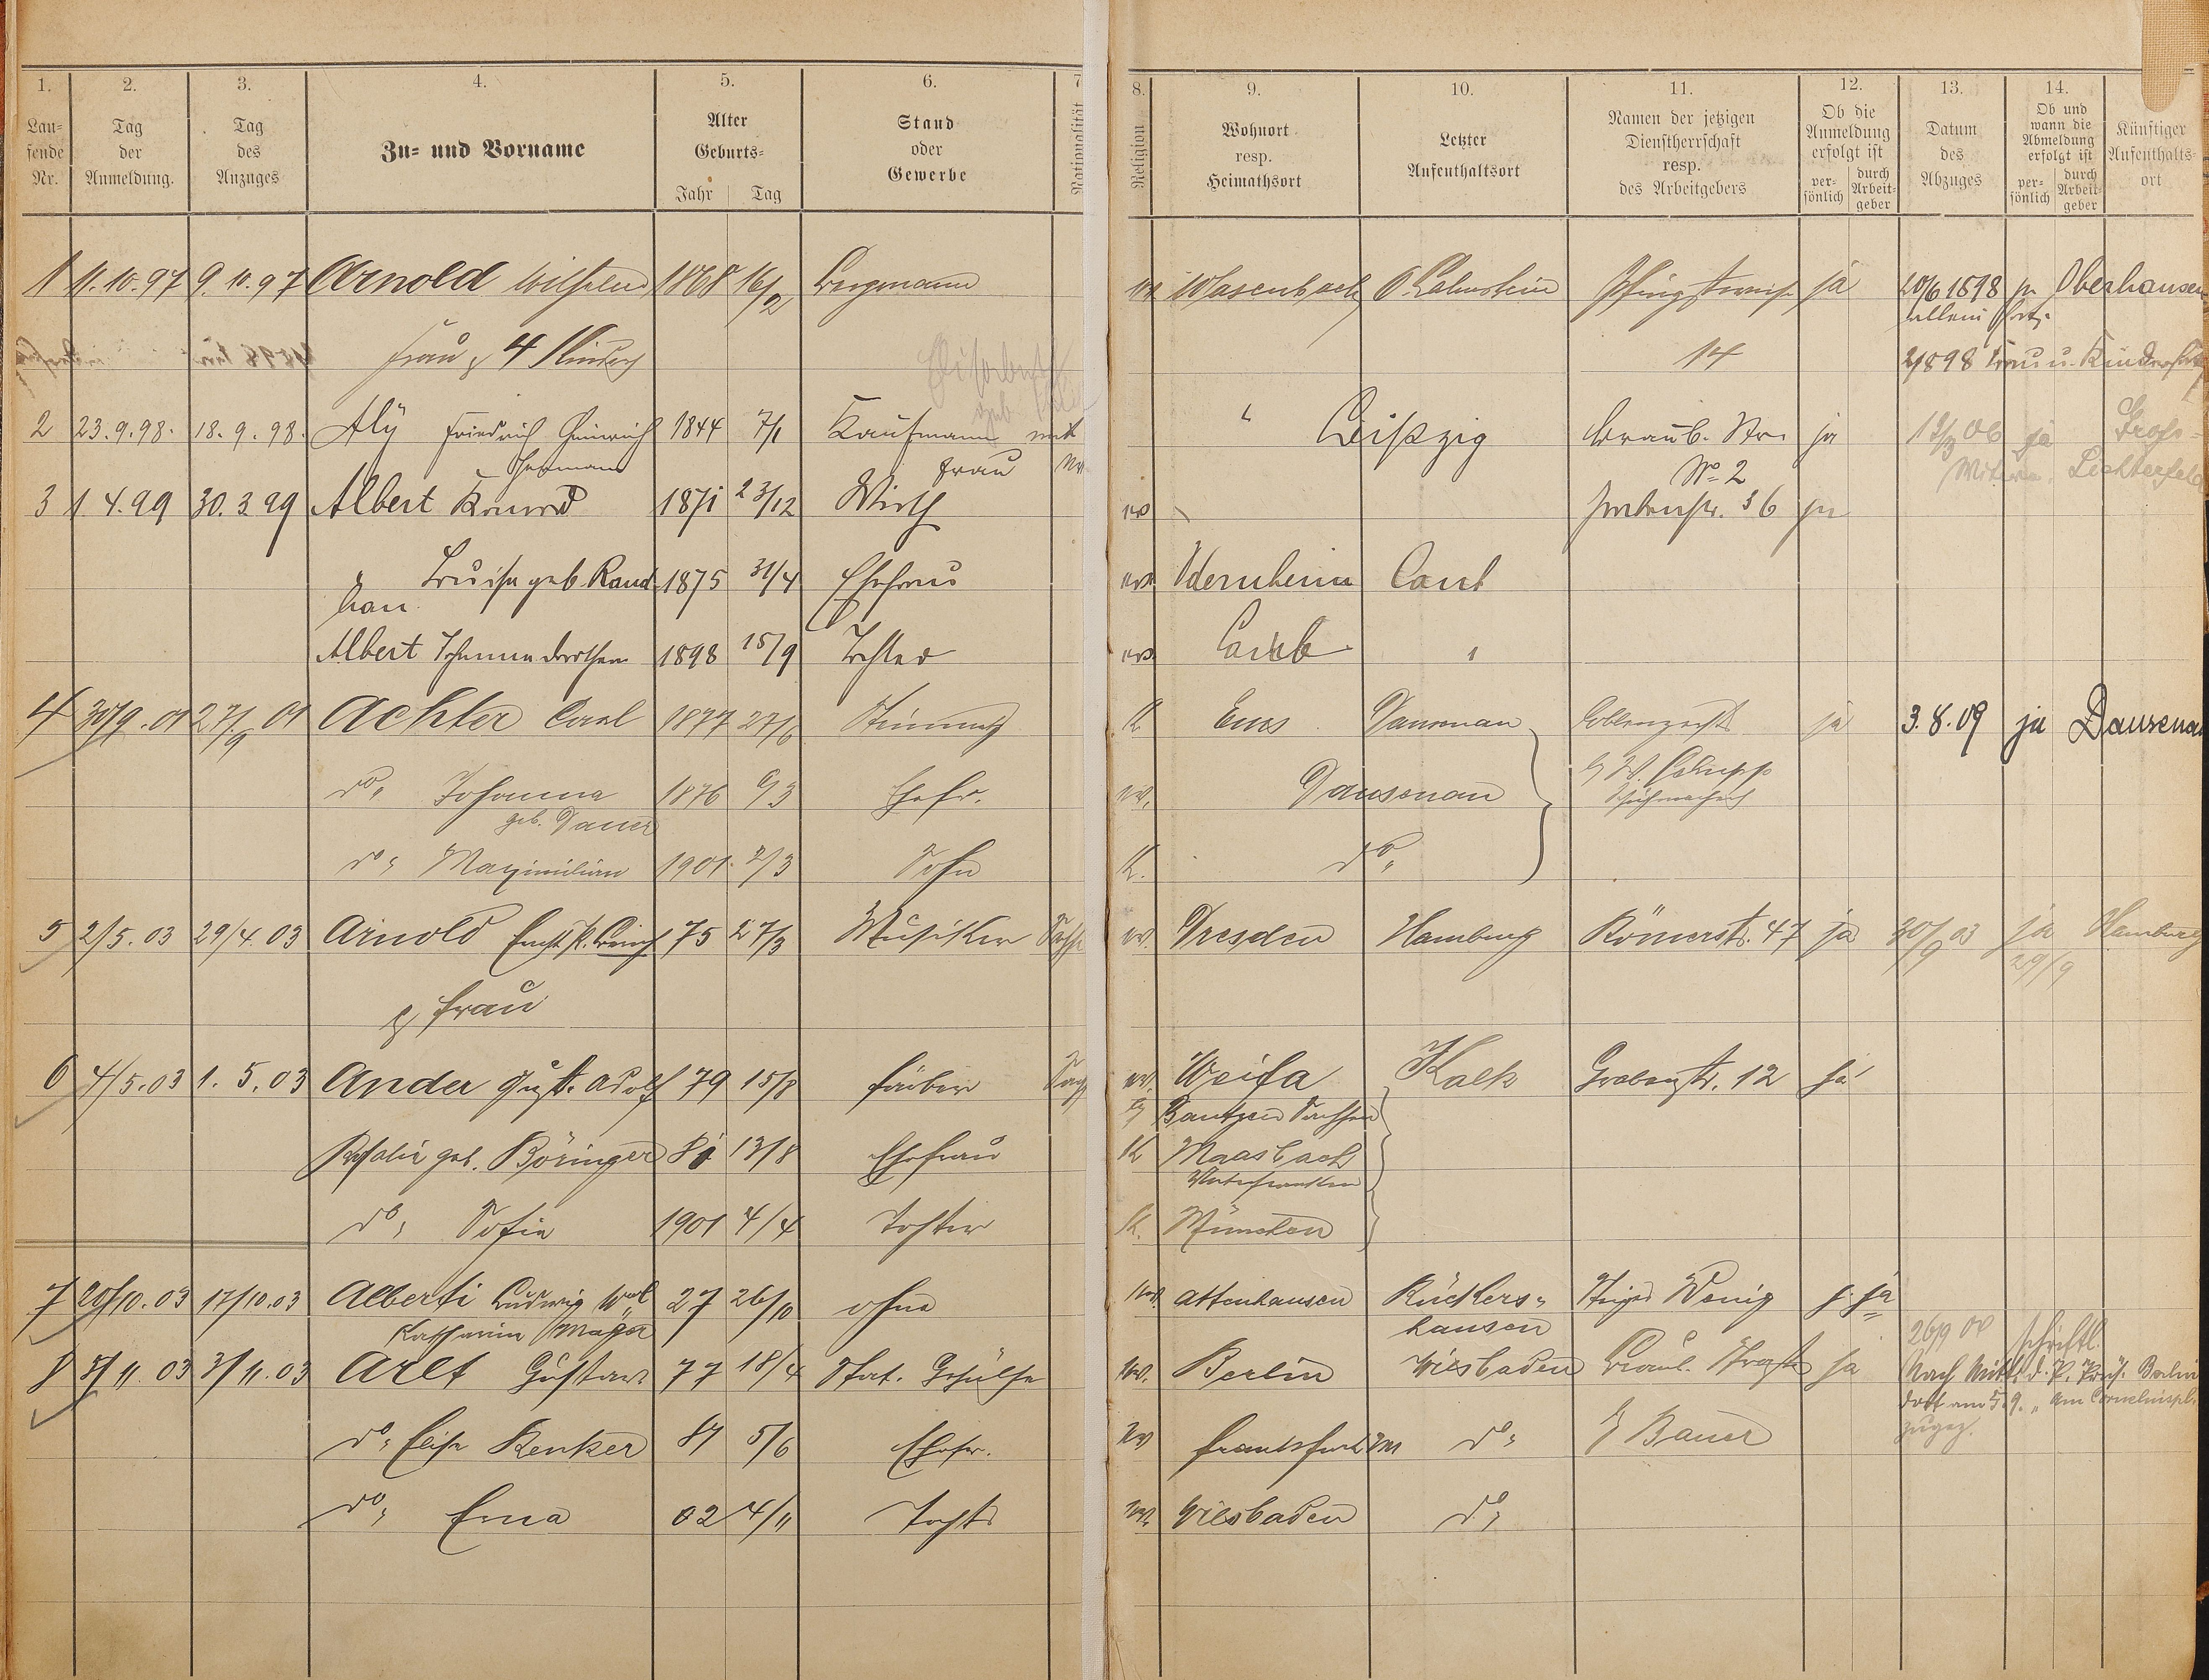 1. 2. 3. 4. 5. 6. 7 8. 9. 10. 11. 12. 13. 14.
Lau-
fende
Nr.
Tag
der
Anmeldung.
Tag
des
Anzuges
Zu- und Vorname
Alter
Geburts-
Jahr Tag
Stand
oder
Gewerbe
Nationalität
Religion
Wohnort
resp.
Heimathsort
Letzter
Aufenthaltsort
Namen der jetzigen
Dienstherrschaft
resp.
des Arbeitgebers
Ob die
Anmeldung
erfolgt ist
per-
sönlich
durch
Arbeit-
geber
Datum
des
Abzuges
Ob und
wann die
Abmeldung
erfolgt ist
per-
sönlich
durch
Arbeit-
geber
Künftiger
Aufenthalts-
ort
1 11.10.97 9.10.97 Arnold Wilhelm 1868 16/2 Bergmann Wasenbach O. Lahnstein ja 20/6 1898 ja Oberhausen
allein
Frau & 4 Kinder 14 2/8 98 Frau u. Kinder
2 23.9.98. 18.9.98. Aly Friedrich Heinrich 1844 7/1 Kaufmann mit " Leipzig Braub. Str. ja 06 ja Gross-
Hermann Frau No 2 Lichterfeld
3 1.4.99 30.3.99 Albert 1871 23/12 Wirth ev 36 ja
" Louise geb. Rand- 1875 31/4 Ehefrau ev. Odernheim Caub
han
Albert Johanna Dorothea 1898 15/9 Tochter ev. Caub "
4 30/9.01 27/9 01 Achter Carl 1877 27/6 Steinmetz K Ems Dausenau ja 3.8.09 ja Dausenau
do, Johanna 1876 9/3 Ehefr. ev. Dausenau b/ W. Schupp
geb. Dauer Schuhmacher
do, Maximilian 1901. 2/3 Sohn K. do,
5 2/5.03 29/4.03 Arnold 75 27/3 Musiker ev. Dresden Hamburg Römerstr. 47 ja 30/9 03 ja Hamburg
29/9
& Frau
6 4/5.03 1.5.03 Ander Gust. Adolf 79 15/8 Färber ev. Weifa Kalk Grabenstr. 12 ja
b/ Bautzen Sachsen
Rosalie geb. Böringer 81 13/8 Ehefrau K Maasbach
Unterfranken
do, Sofie 1901 4/4 Tochter K. München
7 20/10.03 17/10.03 Alberti Ludwig 27 26/10 ohne ev. Attenhausen Rückers- Steiger Wenig ja
Katharine Mager hausen
8 5/11.03 3/11.03 Arlt Gustav 77 18/4 Stat. Gehülfe ev. Berlin Wiesbaden Braub. Straße ja 26/9 schriftl.
Nach Mitt. d. P. Präs. Berlin
dort am 5.9. " am Corneliuspl.
zugez.
do, Elise Renker 81 5/6 Ehefr. ev Frankfurt M do, b/ Bauer
do, Erna 02 4/11 Tocht. ev. Wiesbaden do,